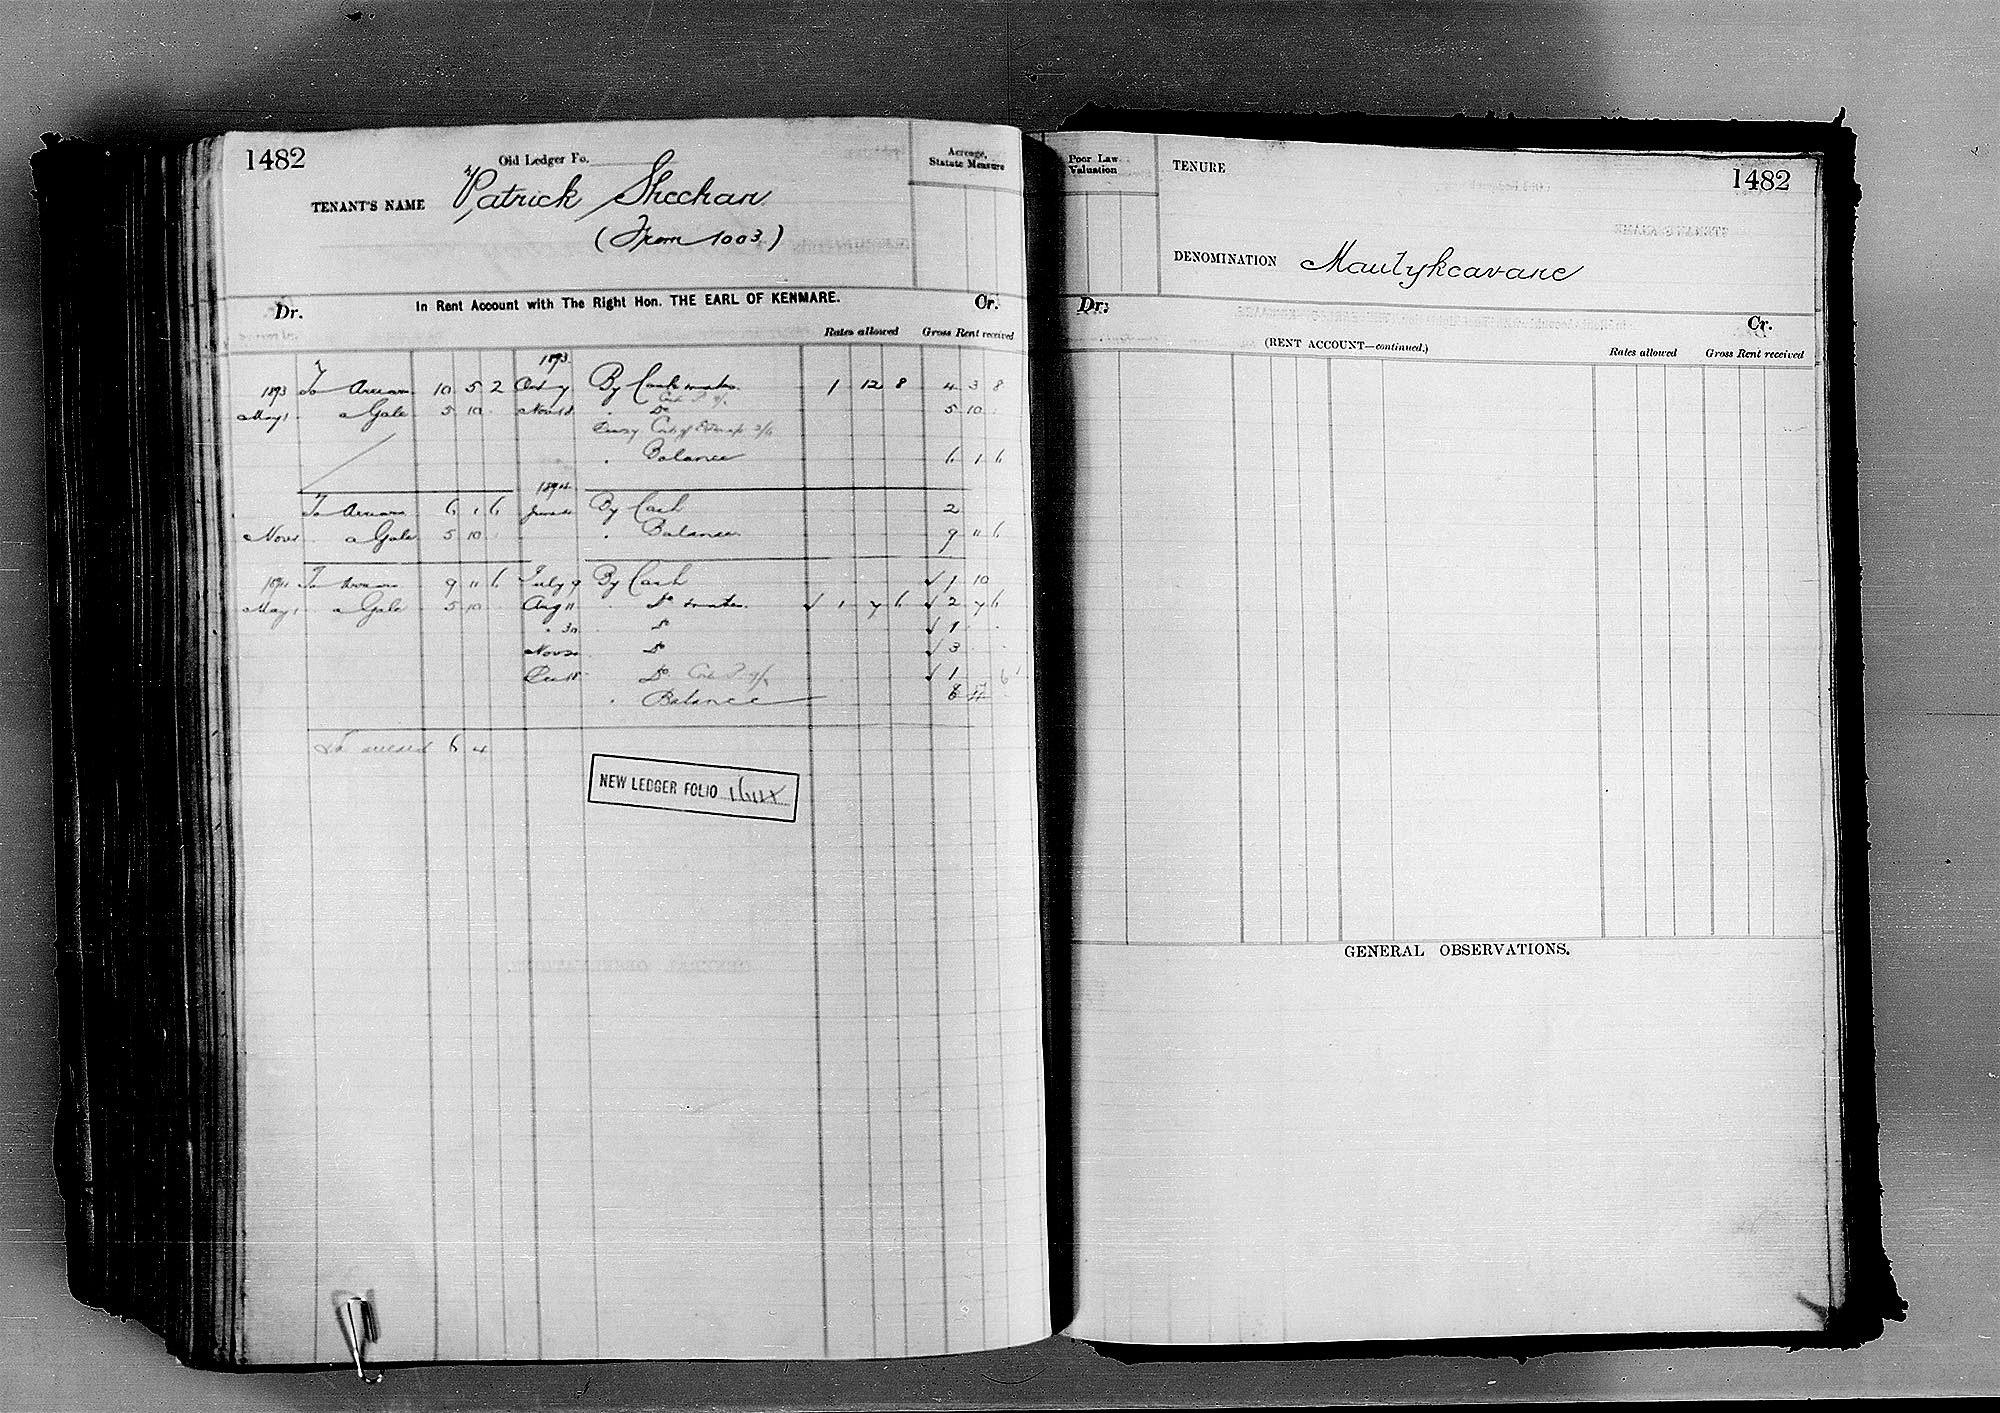 1482
Old Ledger Fo.
TENANT'S NAME Patrick Sheehan
(From 1003)
Acreage, Statute Measure
Dr. In Rent Account with The Right Hon. THE EARL OF KENMARE. Cr.
Rates allowed Gross Rent received
1893
1893 To Arrears 10 5 2 By Cash 1 12 8 4 3 8
May 1 a Gale 5 10 Do 5 10
Balance 6 1 6
1894
To Arrears 6 1 6 June By Cash 2
Nov 1 a Gale 5 10 Balance 9 11 6
1894 To Arrears 9 11 6 July 9 By Cash 1 10
May 1 a Gale 5 10 Aug 11 Do 1 7 6 2 7 6
" 30 Do 1
Nov Do 3
Dec 18 Do 1
Balance 6
To arrears 6 4
NEW LEDGER FOLIO
Poor Law Valuation
TENURE
1482
DENOMINATION Maulykeavane
Dr. Cr.
(RENT ACCOUNT—continued.)
Rates allowed Gross Rent received
GENERAL OBSERVATIONS.